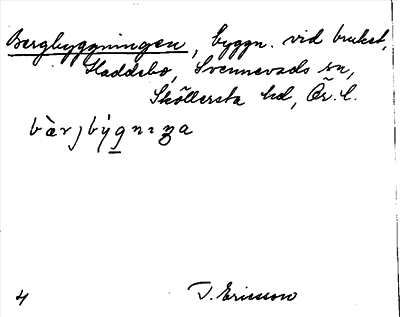 Bergbyggningen, byggn. vid bruket,
Haddebo, Svennevads sn,
Sköllersta hd, Ör. l.
4 T. Ericsson